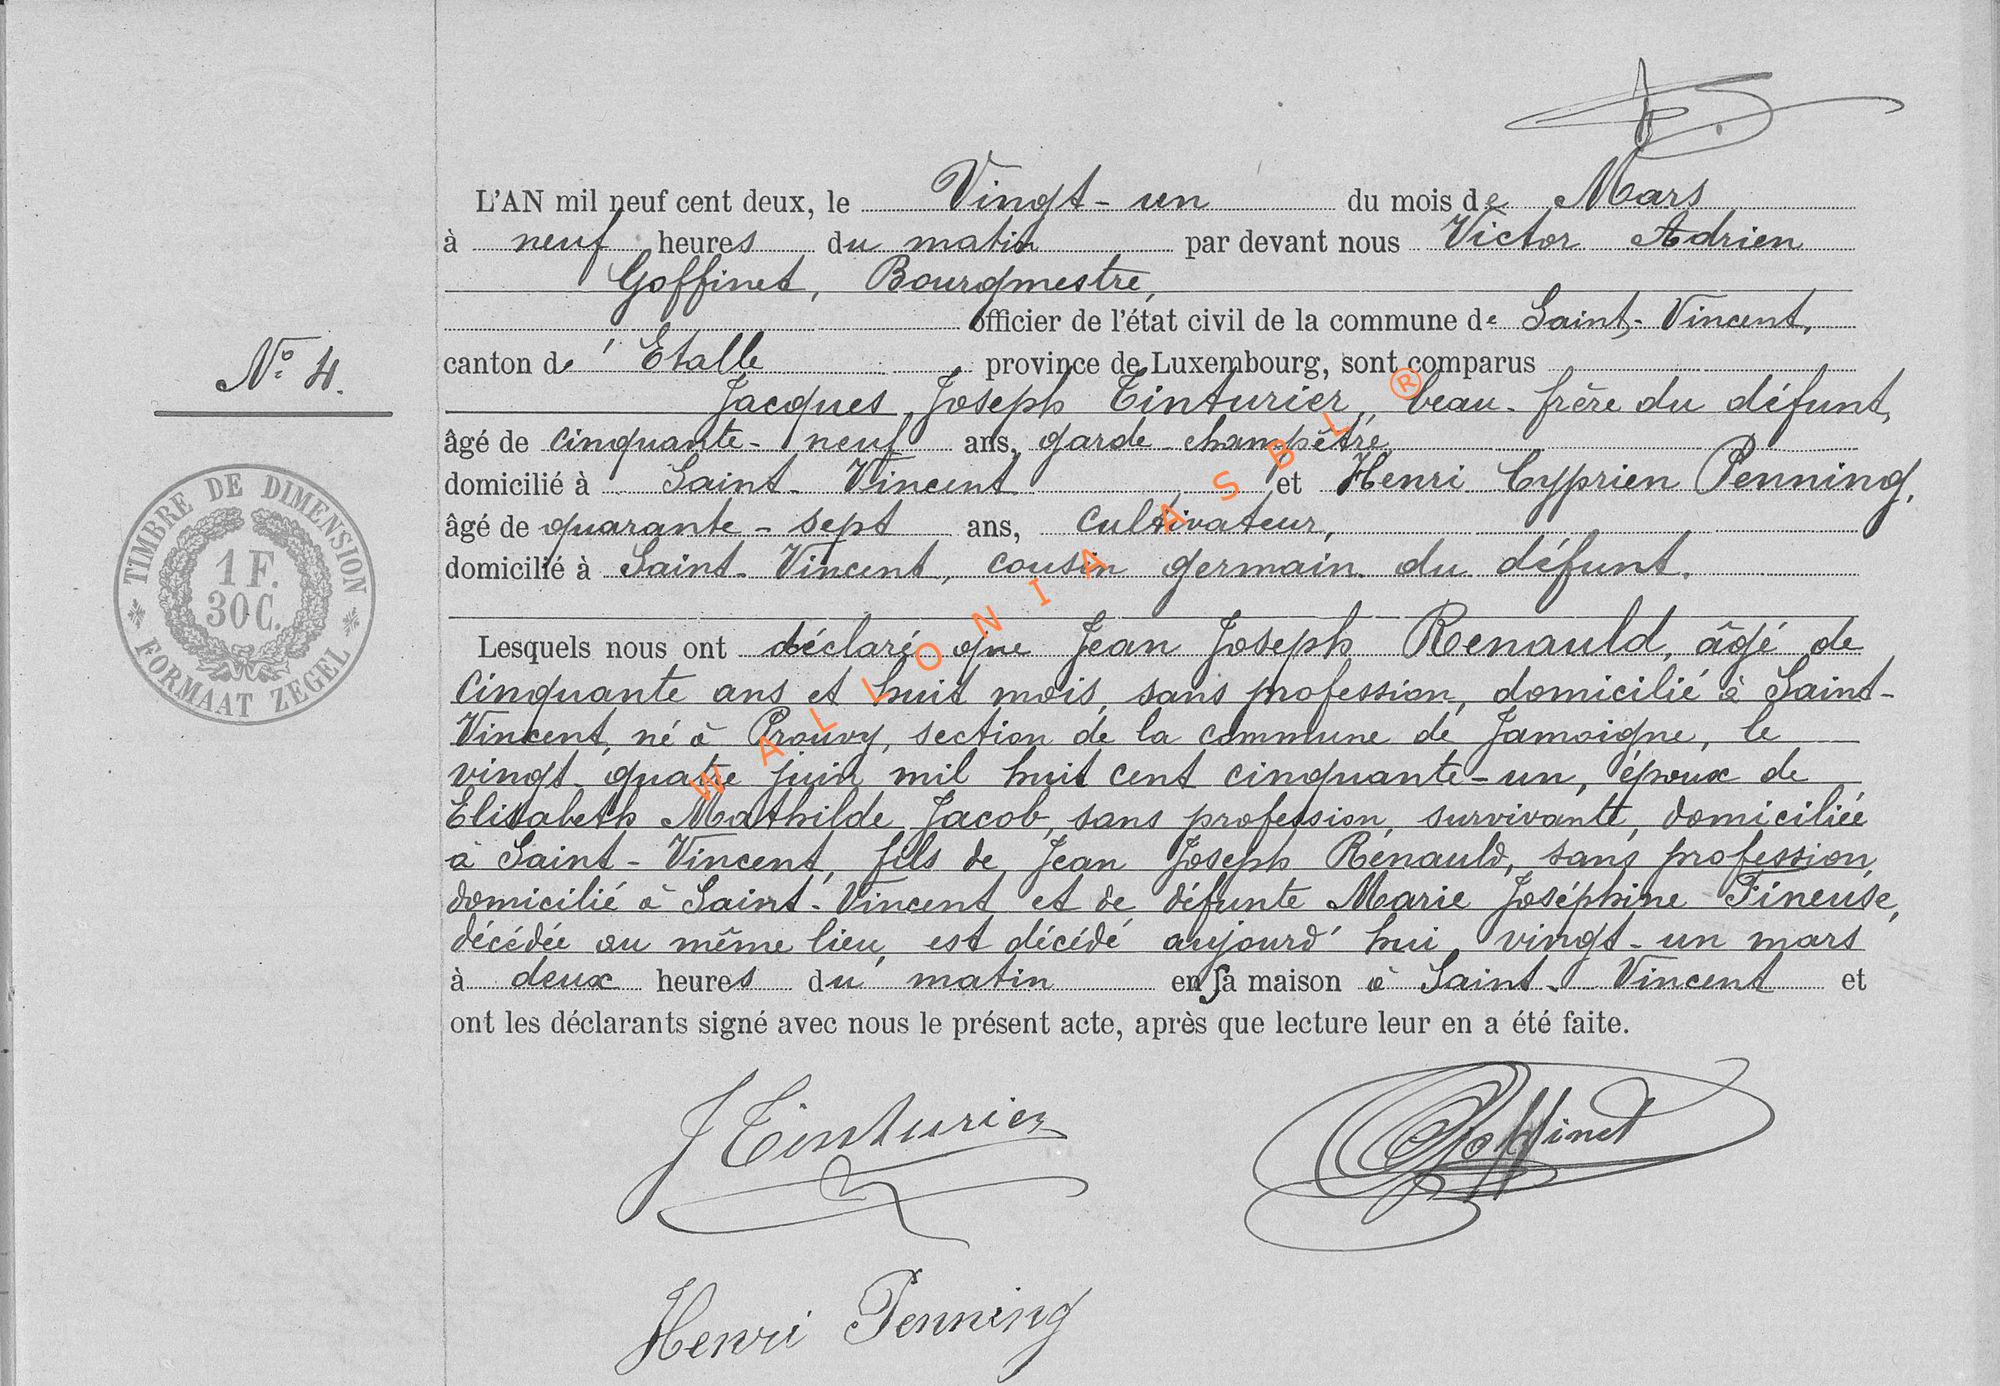 L'AN mil neuf cent deux, le Vingt-un du mois de Mars
à neuf heures du matin par devant nous Victor Adrien
Goffinet, Bourgmestre,
officier de l'état civil de la commune de Saint-Vincent,
N° 4.
canton d' Etalle province de Luxembourg, sont comparus
Jacques Joseph Tinturier, beau-frère du défunt,
âgé de cinquante-neuf ans, garde-champêtre
domicilié à Saint-Vincent et Henri Cyprien Penning,
âgé de quarante-sept ans, cultivateur,
domicilié à Saint-Vincent, cousin germain du défunt.
TIMBRE DE DIMENSION
1 F.
30 C.
FORMAAT ZEGEL
Lesquels nous ont déclaré que Jean Joseph Renauld, âgé de
cinquante ans et huit mois, sans profession, domicilié à Saint-
Vincent, né à Prouvy, section de la commune de Jamoigne, le
vingt-quatre juin mil huit cent cinquante-un, époux de
Elisabeth Mathilde Jacob, sans profession, survivante, domiciliée
à Saint-Vincent, fils de Jean Joseph Renauld, sans profession,
domicilié à Saint-Vincent et de défunte Marie Joséphine Fineuse,
décédée au même lieu, est décédé aujourd'hui vingt-un mars
à deux heures du matin en sa maison à Saint-Vincent et
ont les déclarants signé avec nous le présent acte, après que lecture leur en a été faite.
J Tinturier
Goffinet
Henri Penning
WALLONIA ASBL ®